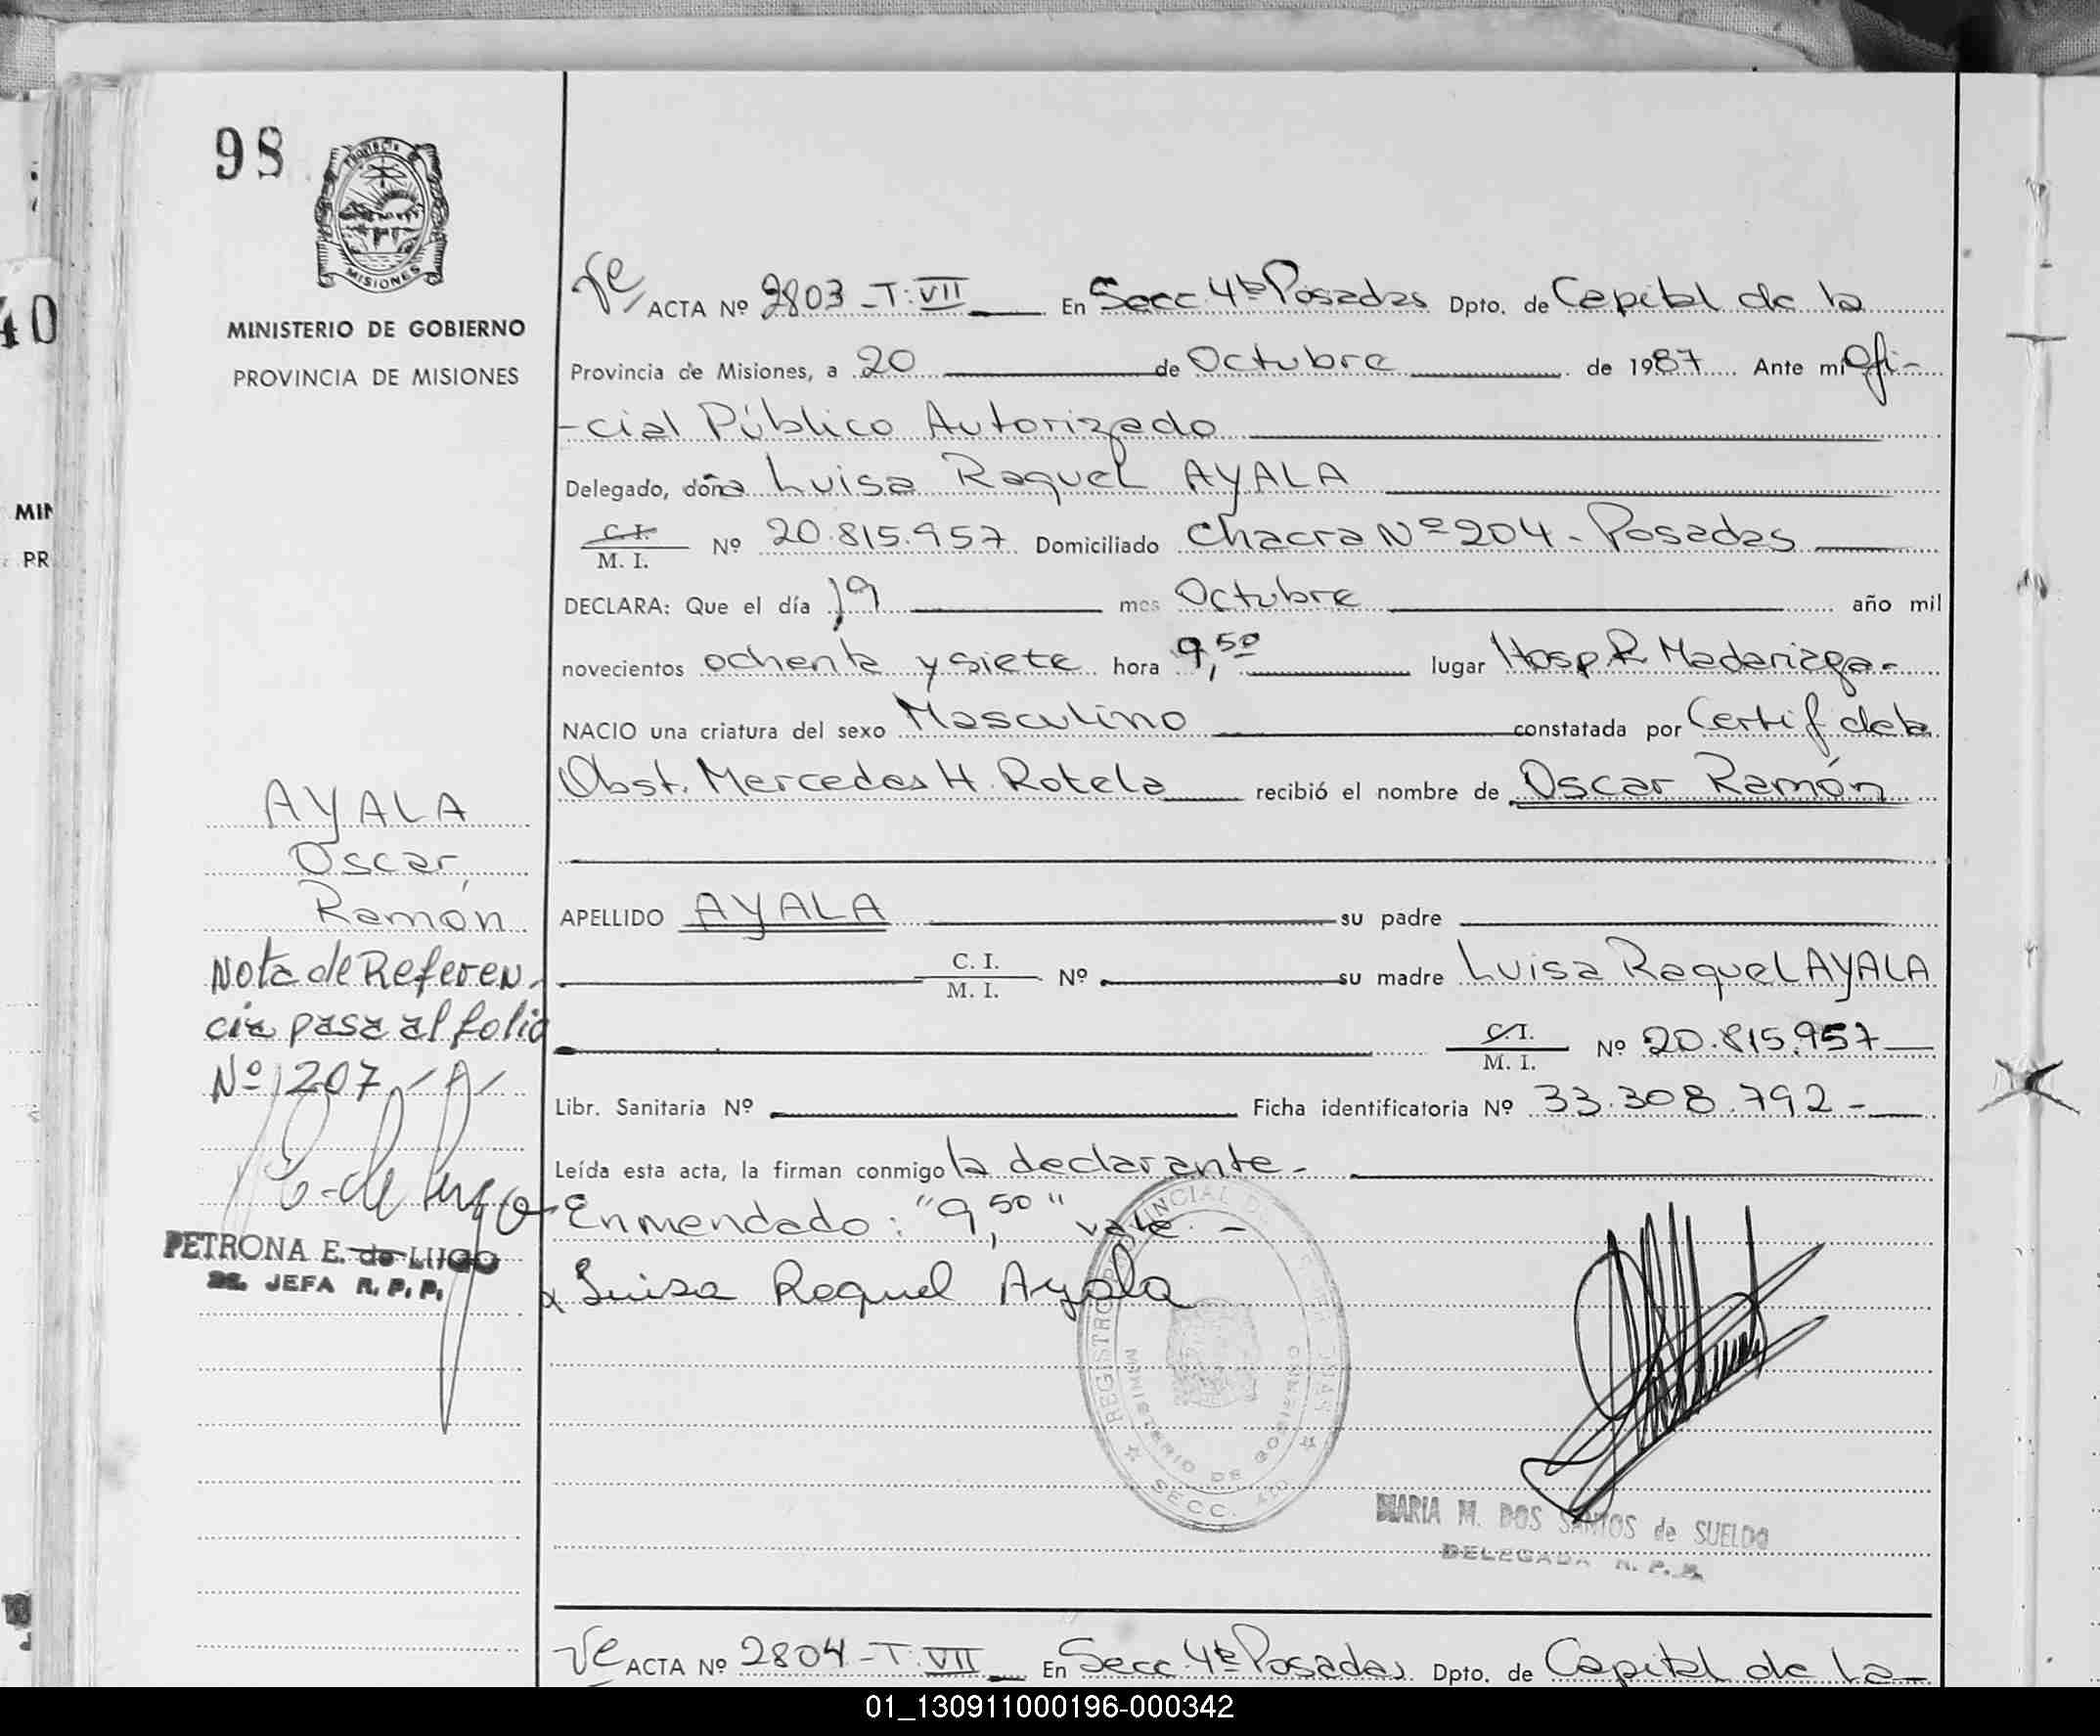 98
PROVINCIA
MISIONES
MINISTERIO DE GOBIERNO
PROVINCIA DE MISIONES
40
MIN
PR
ACTA Nº 2803 - T: VII En Secc. 4ta Posadas Dpto. de Capital de la
Provincia de Misiones, a 20 de Octubre de 1987 Ante mi Ofi-
-cial Público Autorizado
Delegado, doña Luisa Raquel AYALA
C. I. / M. I. Nº 20.815.957 Domiciliado Chacra Nº 204 - Posadas
DECLARA: Que el día 19 mes Octubre año mil
novecientos ochenta y siete hora 9,50 lugar Hosp R Madariaga-
NACIO una criatura del sexo Masculino constatada por Certif de la
Obst. Mercedes H. Rotela recibió el nombre de Oscar Ramón
APELLIDO AYALA su padre
C. I. / M. I. Nº su madre Luisa Raquel AYALA
C. I. / M. I. Nº 20.815.957
Libr. Sanitaria Nº Ficha identificatoria Nº 33.308.792 -
Leída esta acta, la firman conmigo la declarante -
Enmendado: "9,50" vale. -
x Luisa Raquel Ayala
AYALA
Oscar
Ramón
Nota de Referen-
cia pasa al folio
Nº 207
PETRONA E. de LUGO
JEFA R.P.P.
REGISTRO PROVINCIAL DE LAS
MINISTERIO DE GOBIERNO
SECC. 4to
MARIA M. DOS SANTOS de SUELDO
DELEGADA R. P. P.
ACTA Nº 2804 - T: VII En Secc 4ta Posadas Dpto. de Capital de La -
01_130911000196-000342